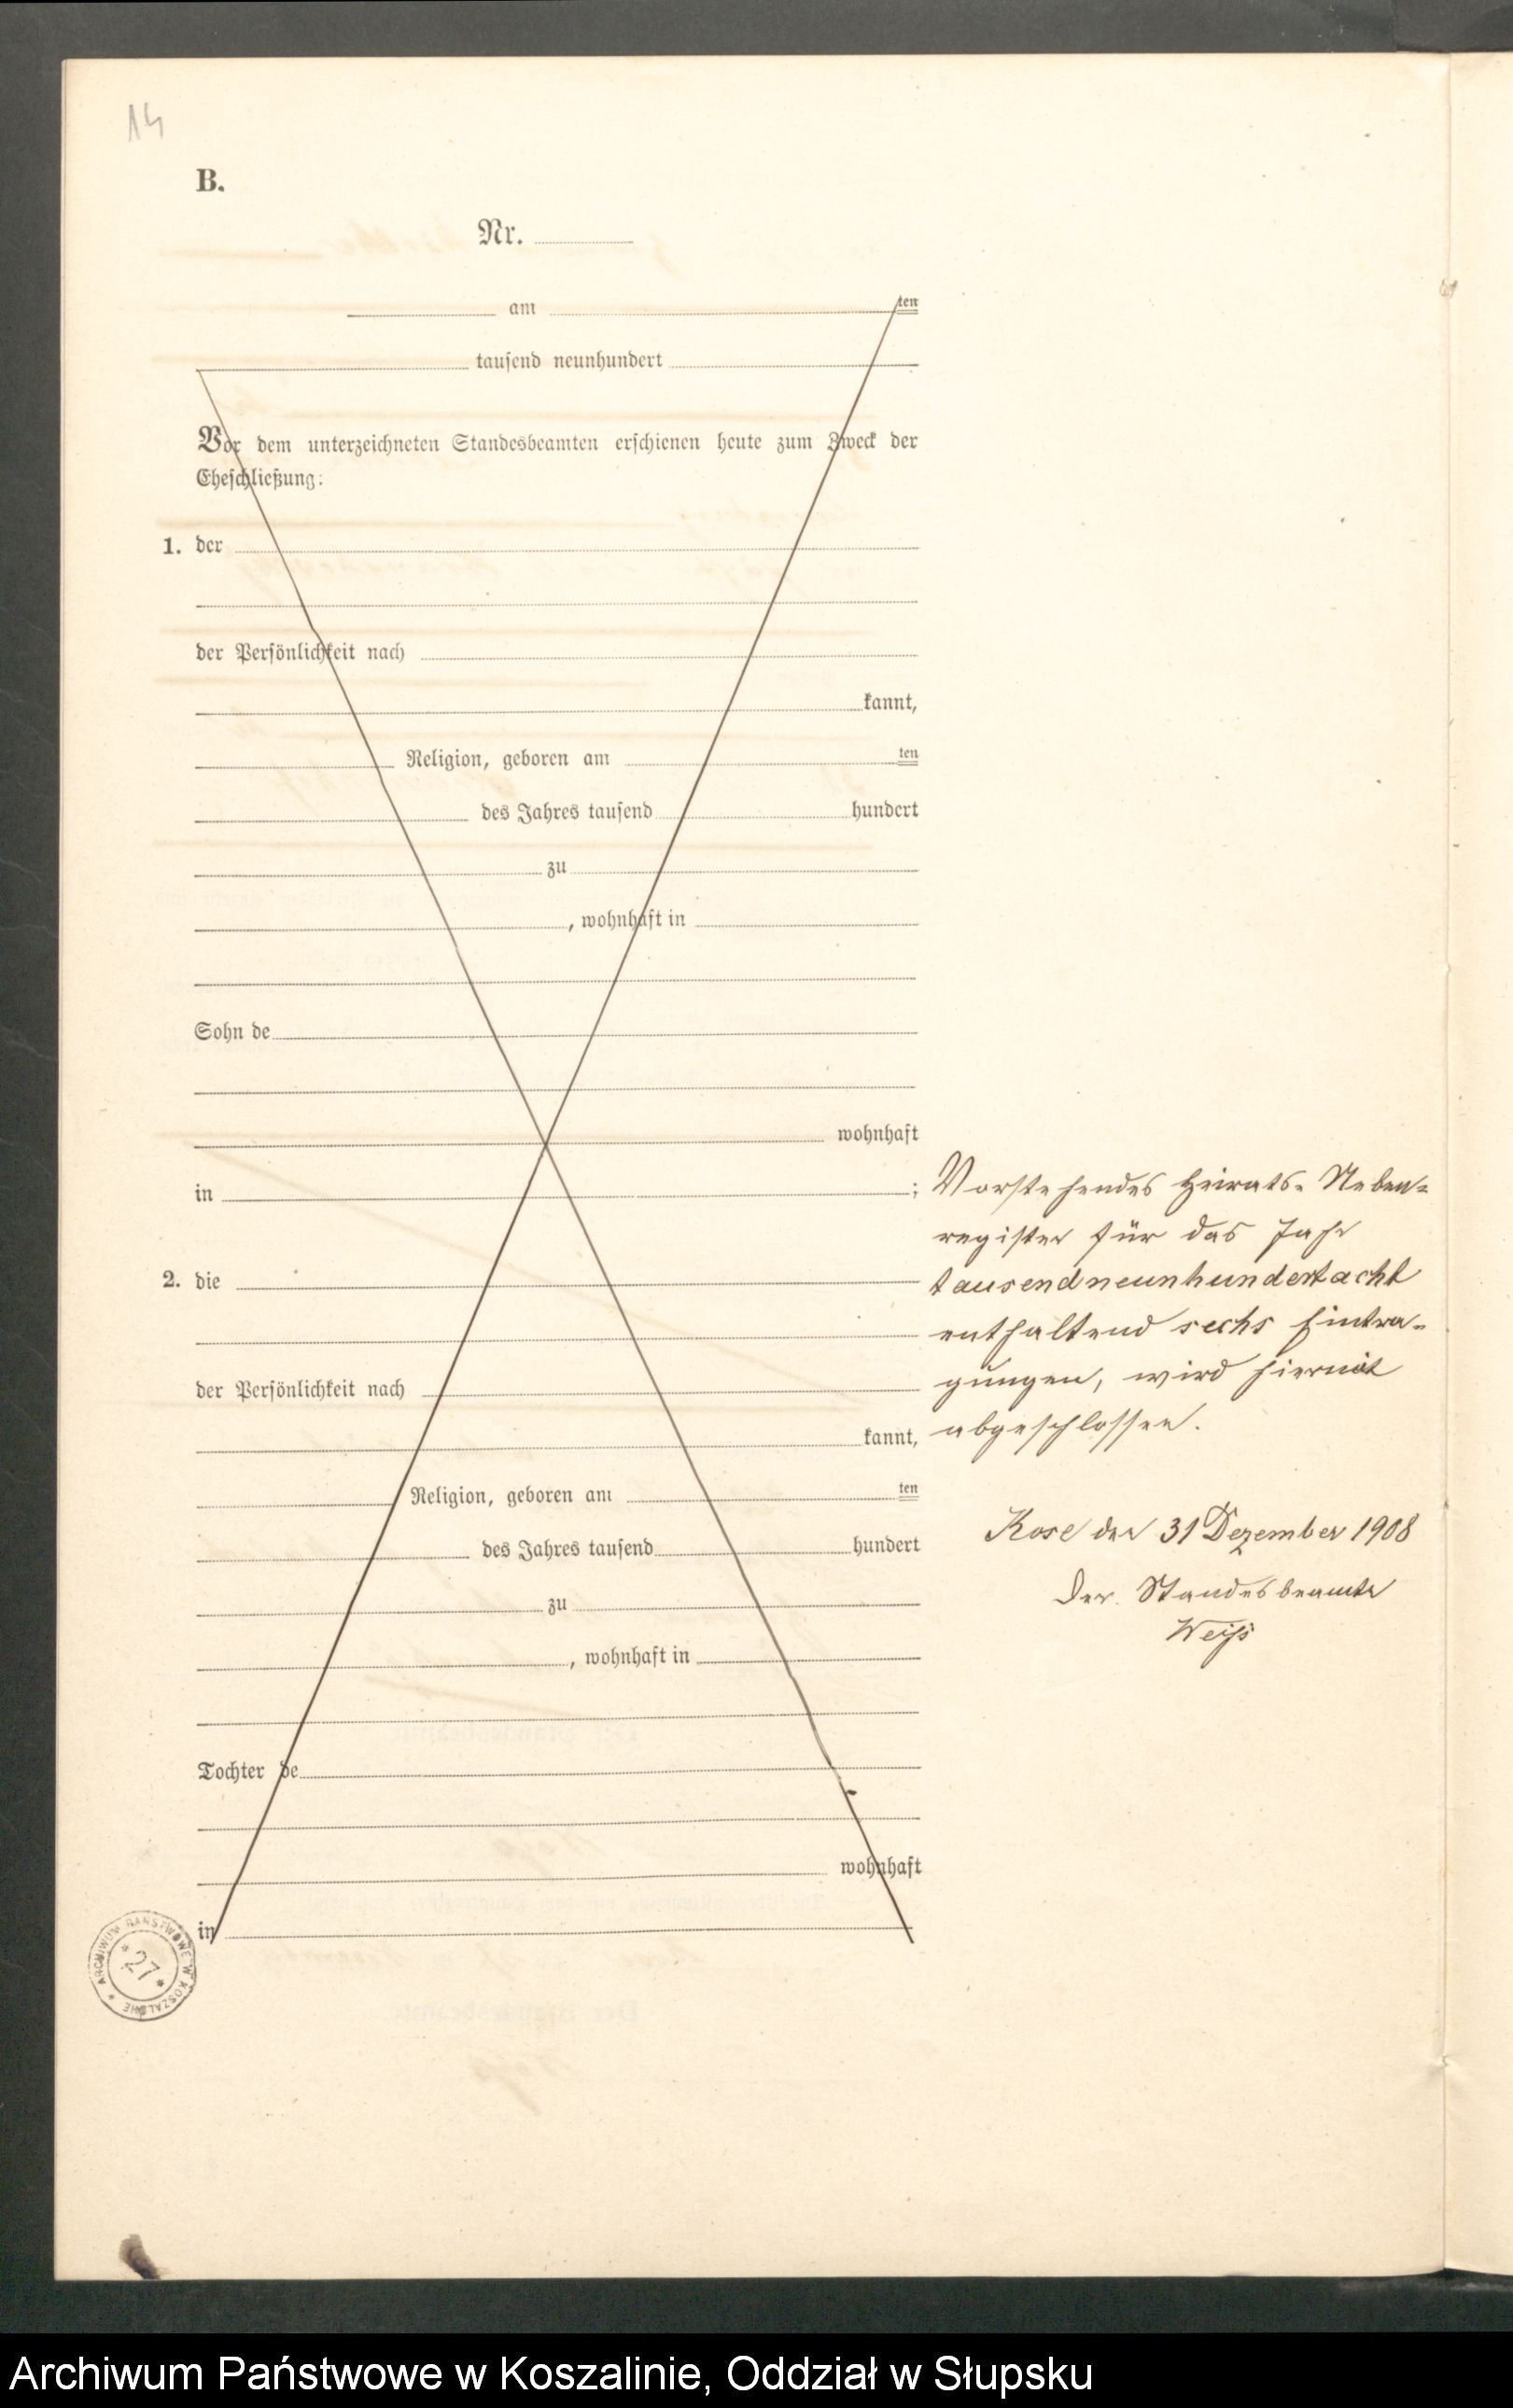 14
B.
Nr.
am ten
tausend neunhundert
Vor dem unterzeichneten Standesbeamten erschienen heute zum Zweck der
Eheschließung:
1. der
der Persönlichkeit nach
kannt,
Religion, geboren am ten
des Jahres tausend hundert
zu
, wohnhaft in
Sohn de
wohnhaft
in ;
2. die
der Persönlichkeit nach
kannt,
Religion, geboren am ten
des Jahres tausend hundert
zu
, wohnhaft in
Tochter de
wohnhaft
in
Vorstehendes Heirats-Neben-
register für das Jahr
tausendneunhundertacht
enthaltend sechs Eintra-
gungen, wird hiermit
abgeschlossen.
Kose den 31 Dezember 1908
Der Standesbeamte
Weiß
ARCHIWUM PAŃSTWOWE W KOSZALINIE
* 27 *
Archiwum Państwowe w Koszalinie, Oddział w Słupsku